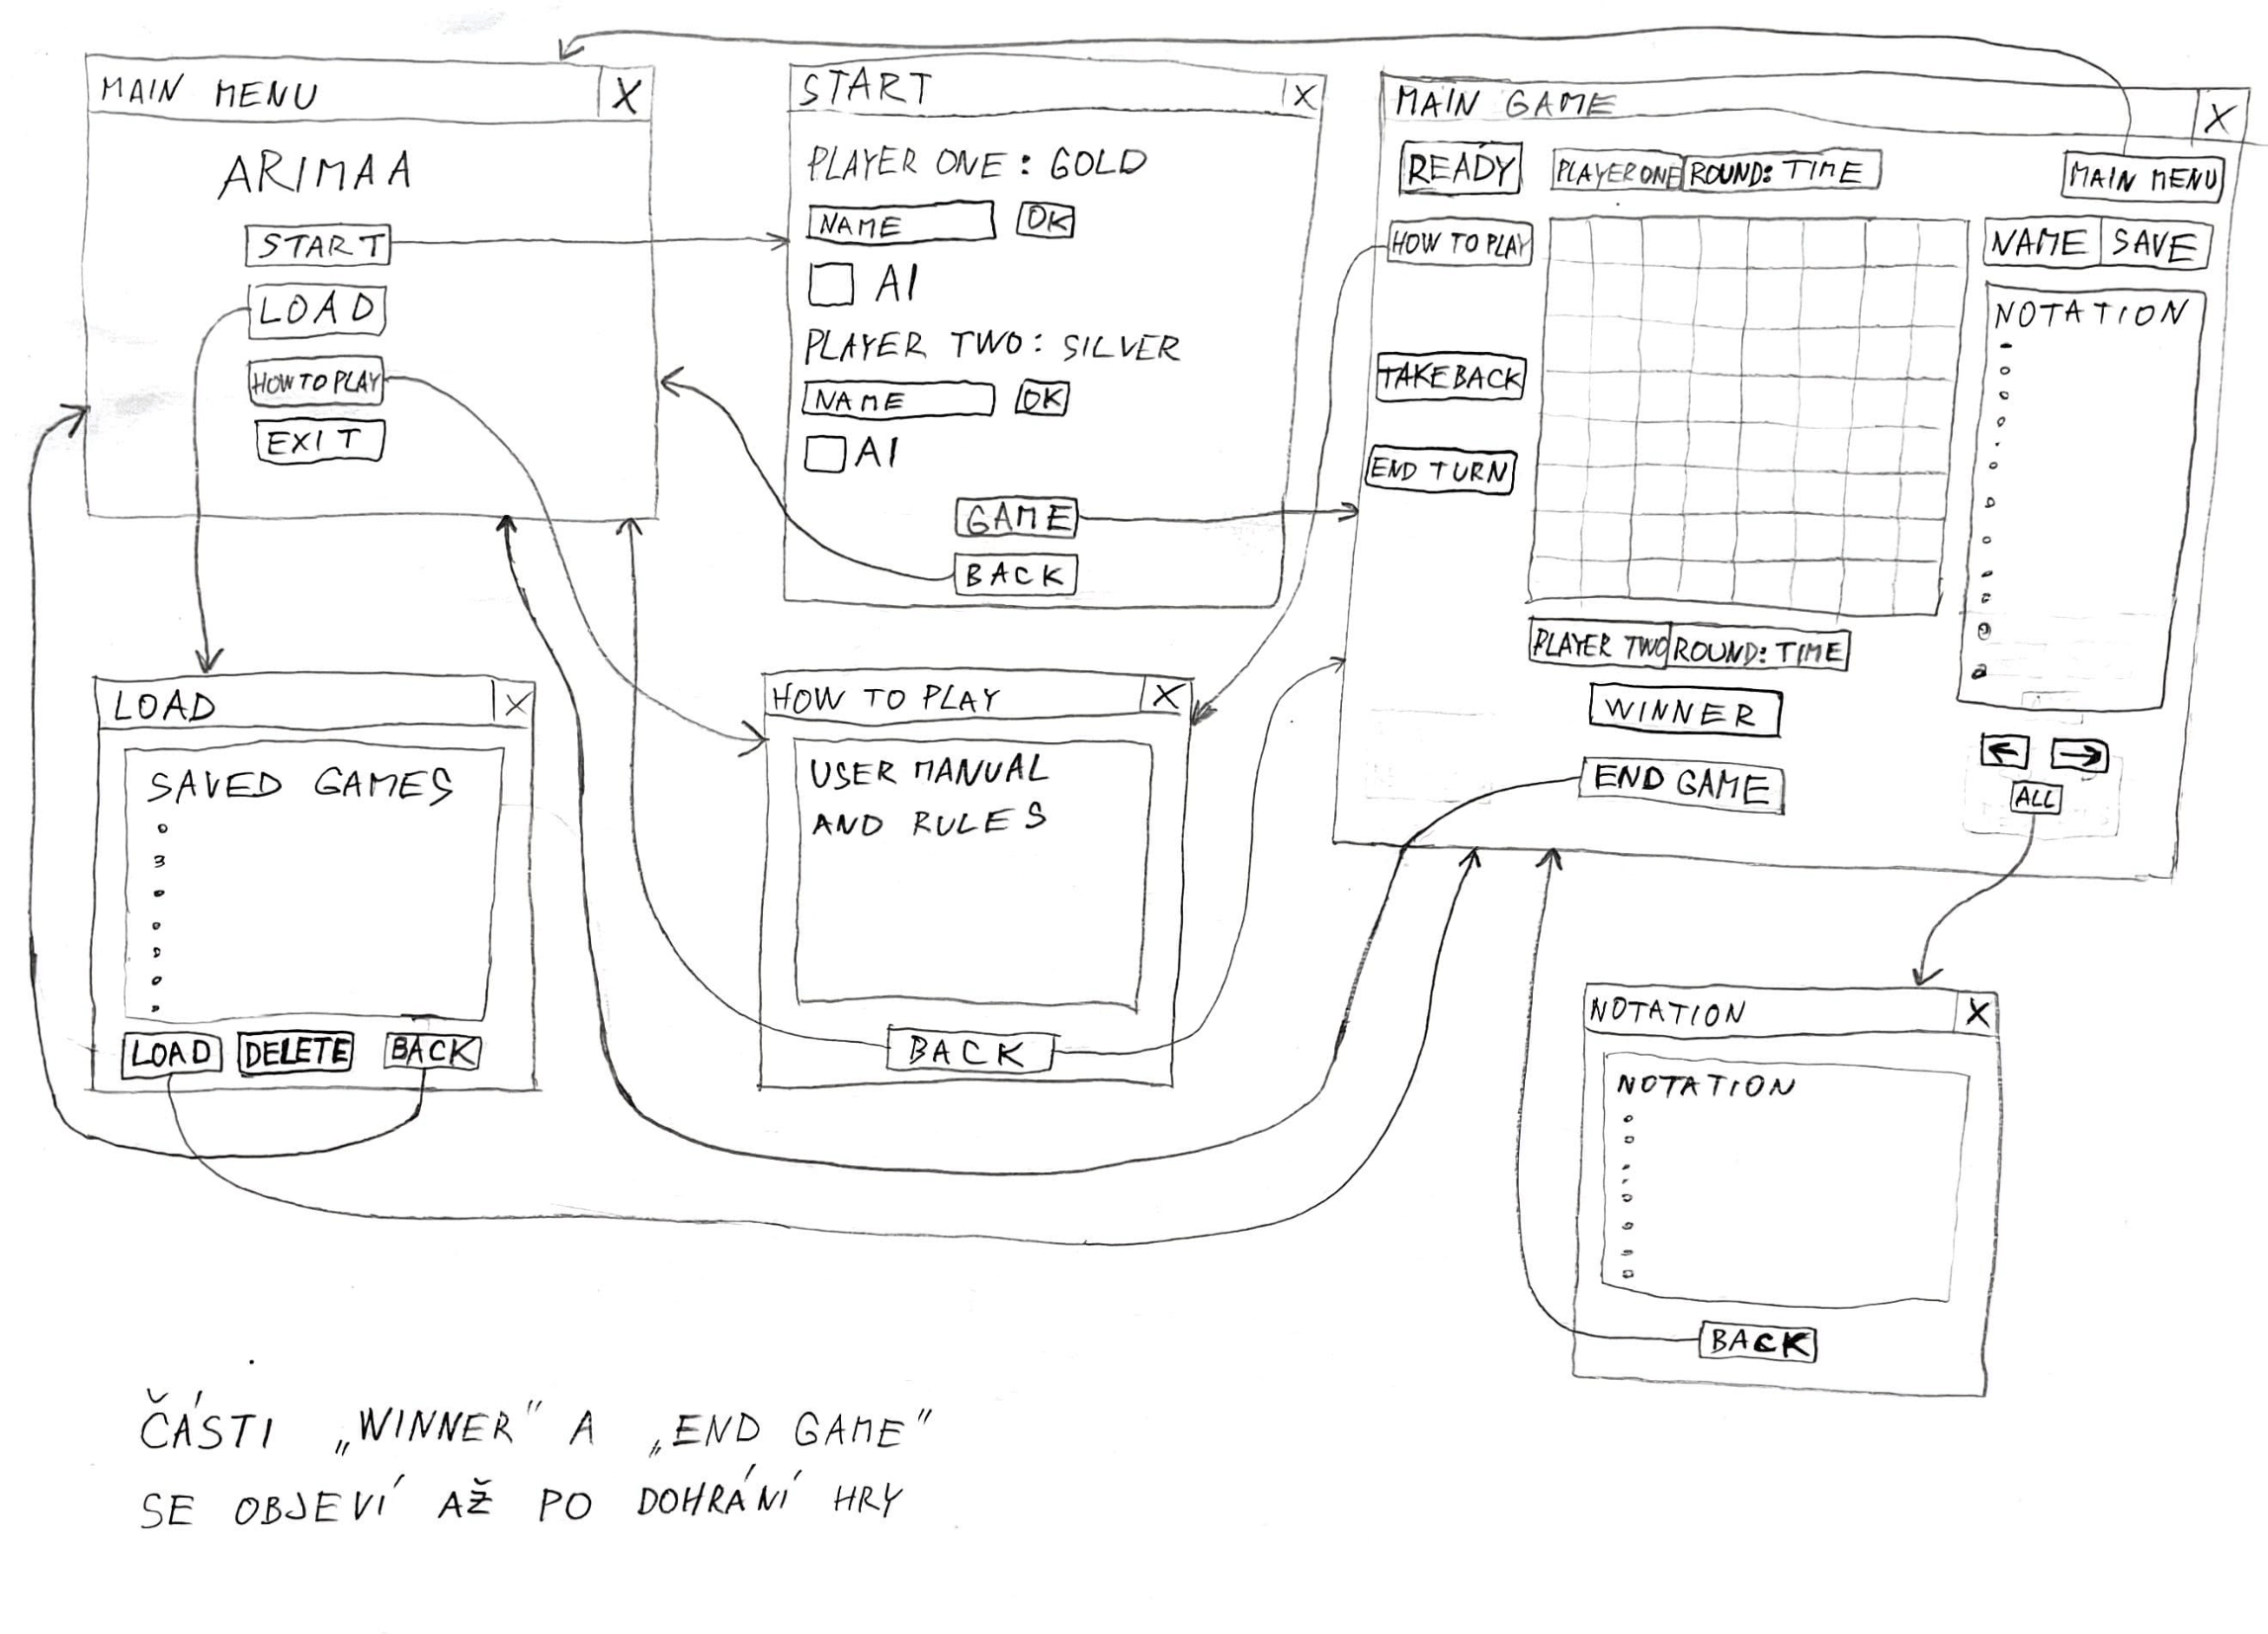 MAIN MENU X
ARIMAA
START
LOAD
HOW TO PLAY
EXIT
START X
PLAYER ONE: GOLD
NAME OK
AI
PLAYER TWO: SILVER
NAME OK
AI
GAME
BACK
MAIN GAME X
READY PLAYER ONE ROUND: TIME MAIN MENU
HOW TO PLAY NAME SAVE
NOTATION
TAKE BACK
END TURN
PLAYER TWO ROUND: TIME
WINNER
END GAME
← →
ALL
LOAD X
SAVED GAMES
LOAD DELETE BACK
HOW TO PLAY X
USER MANUAL
AND RULES
BACK
NOTATION X
NOTATION
BACK
ČÁSTI „WINNER" A „END GAME"
SE OBJEVÍ AŽ PO DOHRÁNÍ HRY